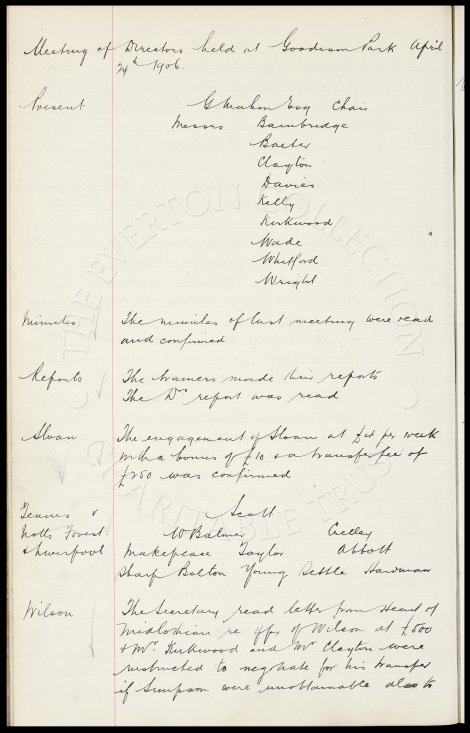 Meeting of Directors held at Goodison Park April
24th 1906.
Present G Mahon Esq Chair
Messrs Bainbridge
Baxter
Clayton
Davies
Kelly
Kirkwood
Wade
Whitford
Wright
Minutes The minutes of last meeting were read
and confirmed
Reports The trainers made their reports
The Drs report was read
Sloan The engagement of Sloan at £4 per week
with a bonus of £10 & a transfer fee of
£250 was confirmed
Teams v Scott
Notts Forest W Balmer Crelley
& Liverpool Makepeace Taylor Abbott
Sharp Bolton Young Settle Hardman
Wilson The Secretary read letter from Heart of
Midlothian re offer of Wilson at £500
& Mr Kirkwood and Mr Clayton were
instructed to negotiate for his transfer
if Simpson were unobtainable also to
THE EVERTON COLLECTION
CHARITABLE TRUST